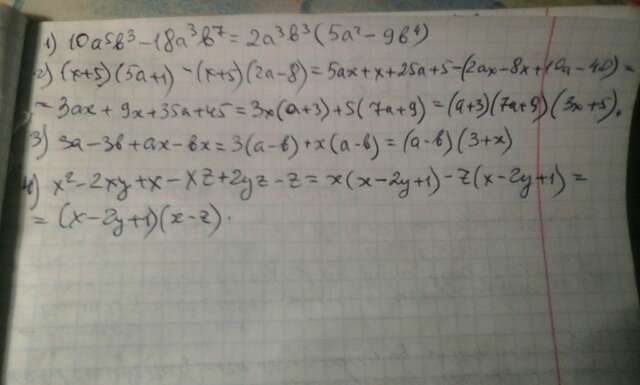 1) 10a⁵b³ - 18a³b⁷ = 2a³b³ (5a² - 9b⁴)
2) (x+5)(5a+1) - (x+5)(2a-8) = 5ax + x + 25a + 5 - (2ax - 8x + 10a - 40) =
= 3ax + 9x + 35a + 45 = 3x(a+3) + 5(7a+9) = (a+3)(7a+9)(3x+5).
3) 3a - 3b + ax - bx = 3(a-b) + x(a-b) = (a-b)(3+x)
4) x² - 2xy + x - xz + 2yz - z = x(x-2y+1) - z(x-2y+1) =
= (x-2y+1)(x-z).